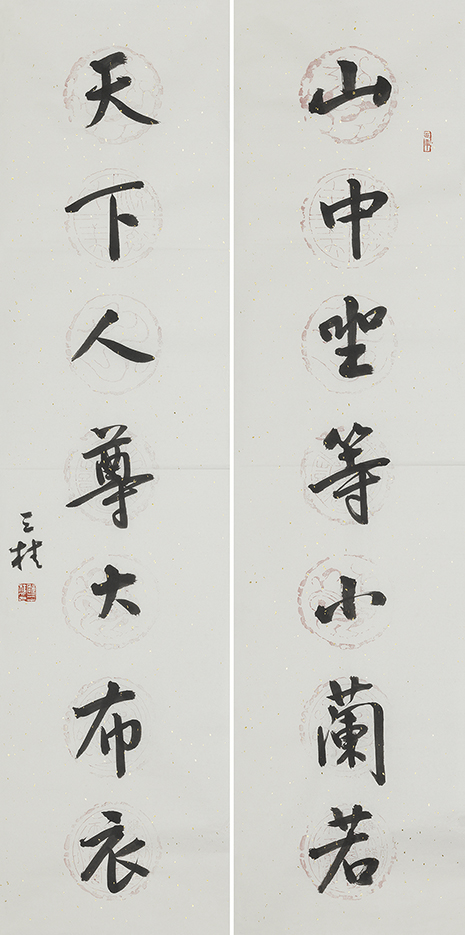 山中坐等小蘭若
天下人尊大布衣
三桂